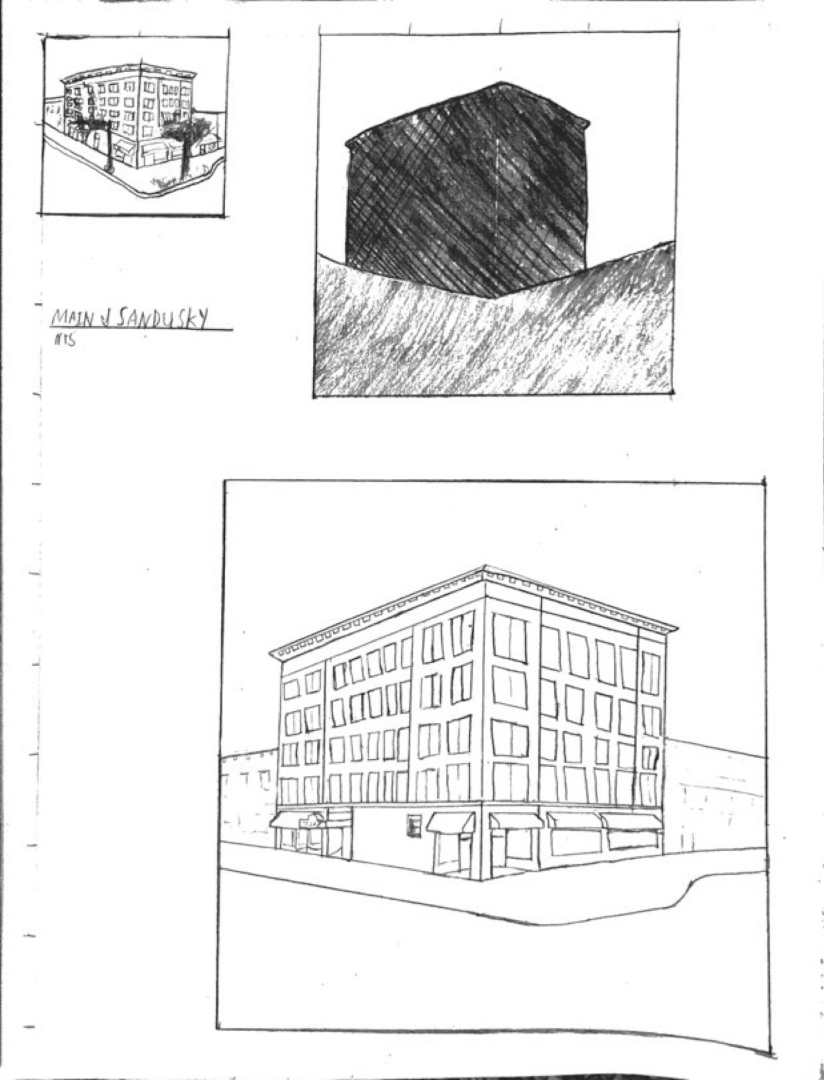 MAIN & SANDUSKY
NTS